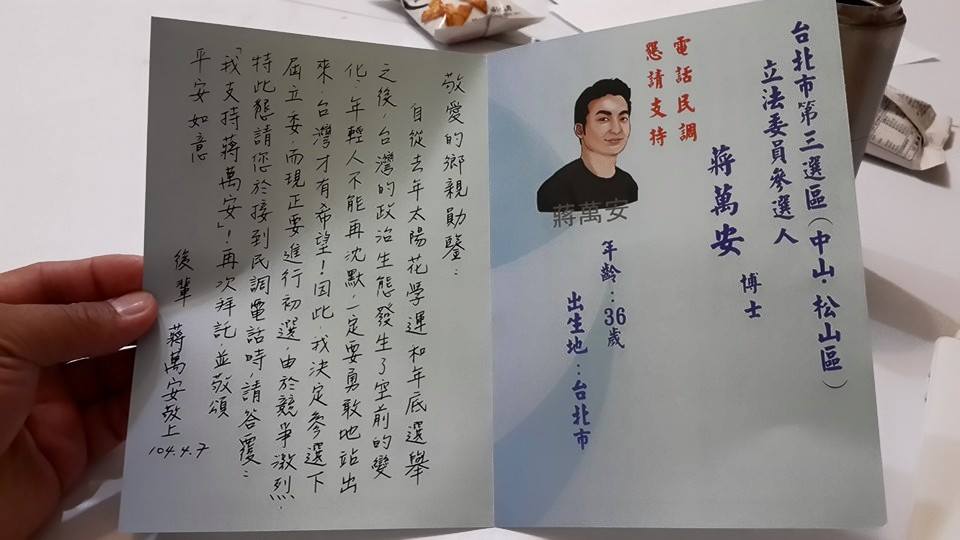 台北市第三選區（中山．松山區）
立法委員參選人
蔣萬安 博士
電話民調
懇請支持
蔣萬安
年齡：36歲
出生地：台北市
敬愛的鄉親勛鑒：
自從去年太陽花學運和年底選舉
之後，台灣的政治生態發生了空前的變
化，年輕人不能再沈默，一定要勇敢地站出
來，台灣才有希望！因此，我決定參選下
屆立委，而現正要進行初選，由於競爭激烈，
特此懇請您於接到民調電話時，請答覆：
「我支持蔣萬安」！再次拜託，並敬頌
平安如意
後輩 蔣萬安敬上
104.4.7